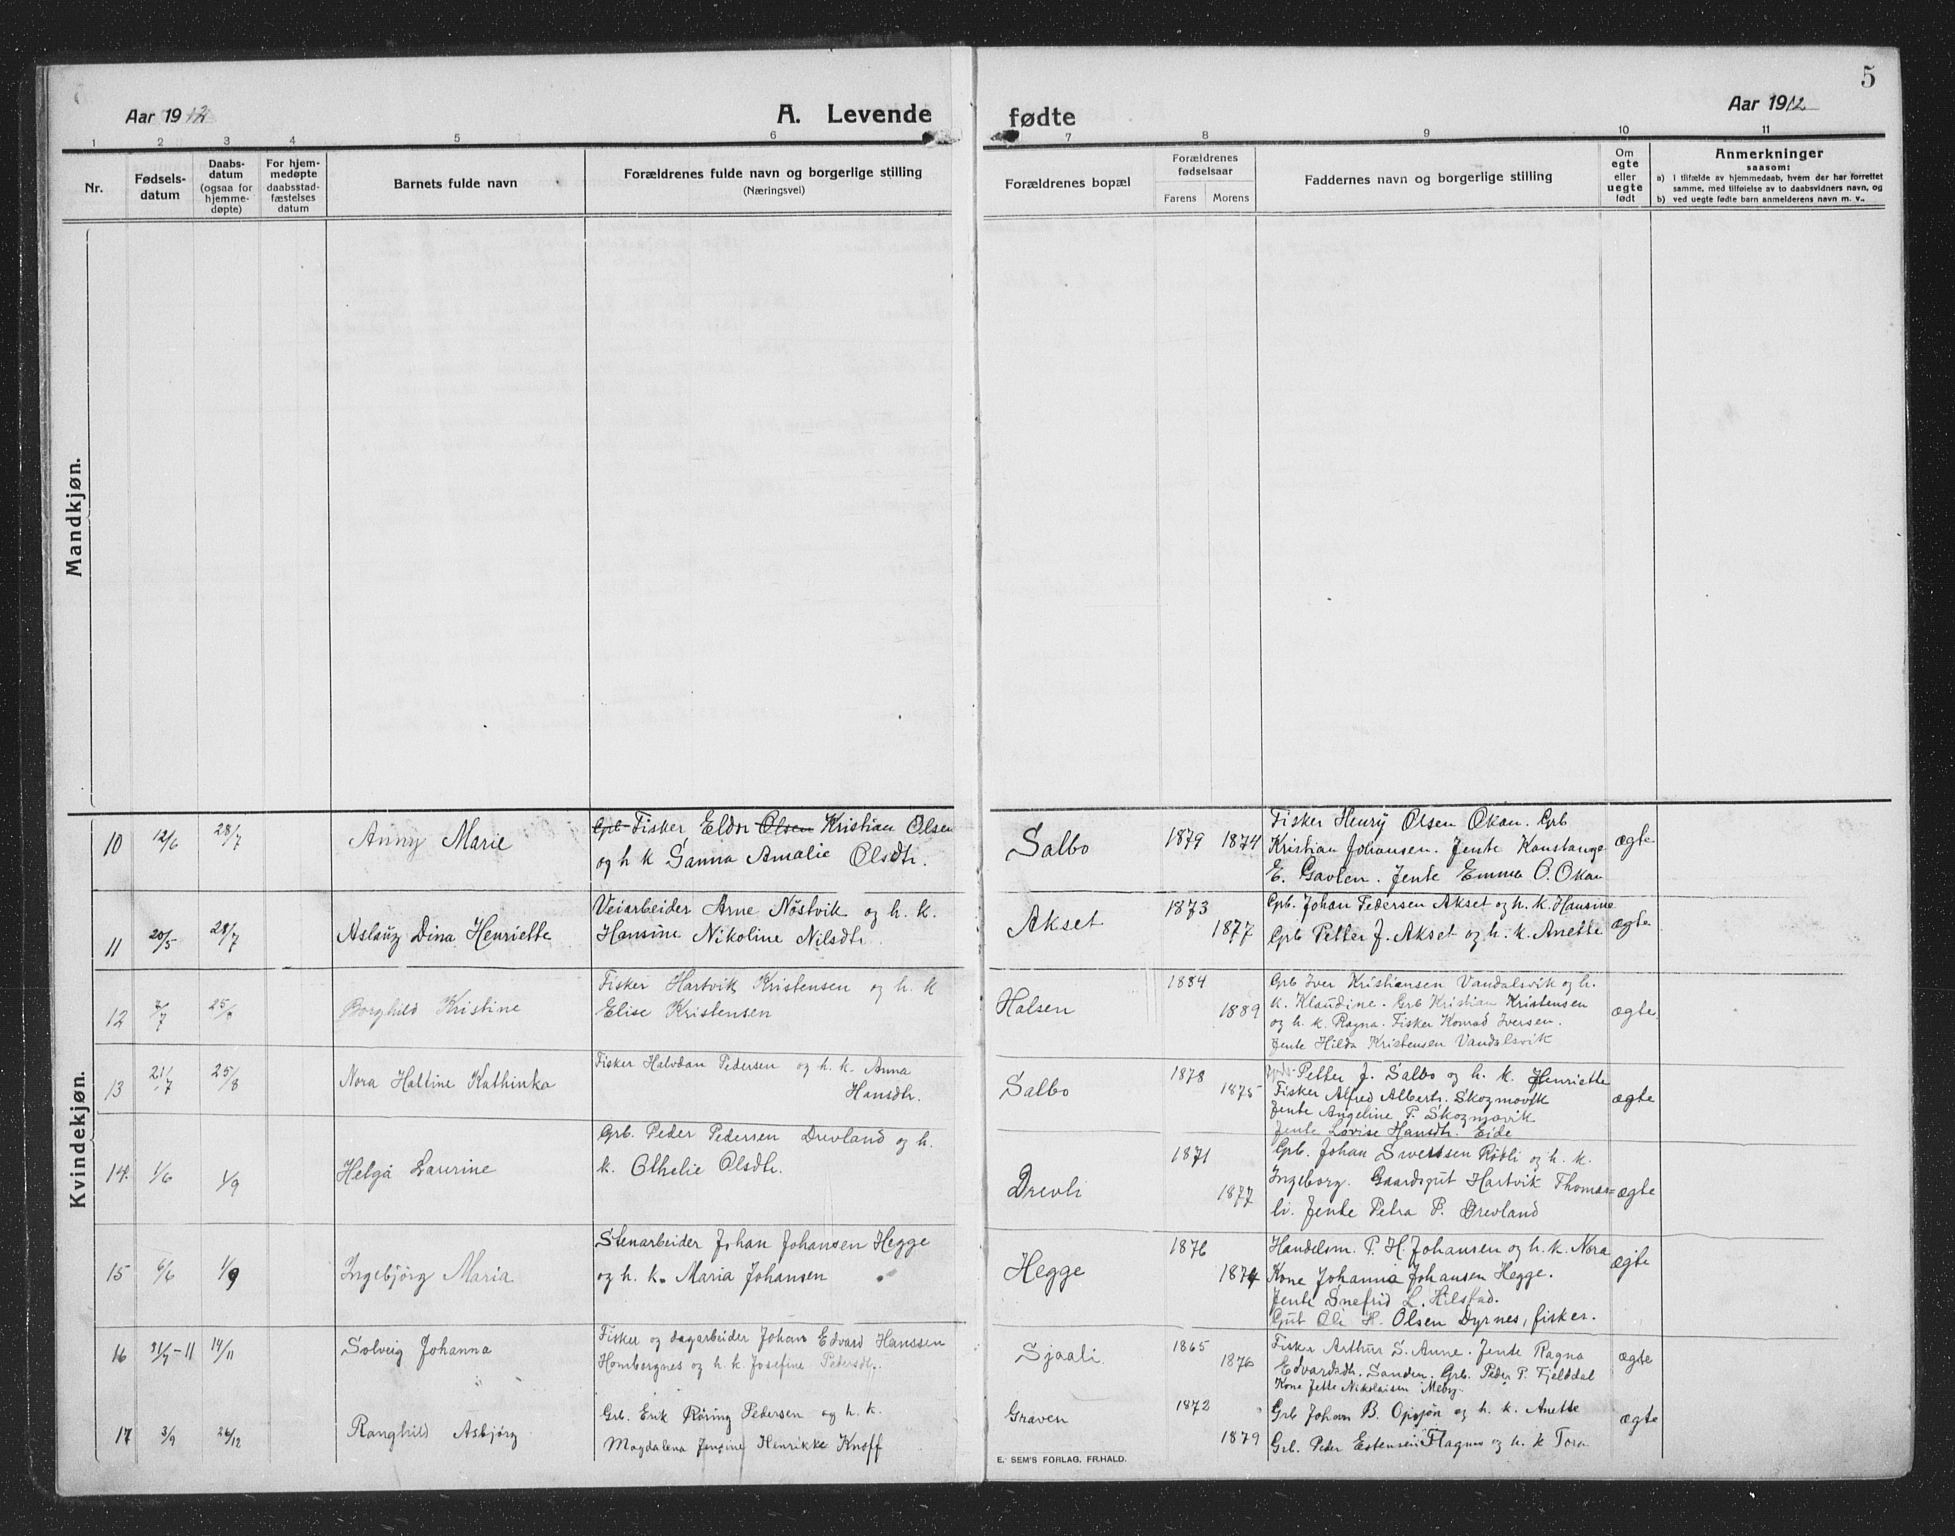 5
Aar 1912
A. Levende
fødte
Aar 1912
1 2 3 4 5 6 7 8 9 10 11
Nr.
Fødsels-
datum
Daabs-
datum
(ogsaa for
hjemme-
døpte)
For hjem-
medøpte
daabsstad-
fæstelses
datum
Barnets fulde navn
Forældrenes fulde navn og borgerlige stilling
(Næringsvei)
Forældrenes bopæl
Forældrenes
fødselsaar
Farens Morens
Faddernes navn og borgerlige stilling
Om
egte
eller
uegte
født
Anmerkninger
saasom:
a) i tilfælde av hjemmedaab, hvem der har forrettet
samme, med tilføielse av to daabsvidners navn, og
b) ved uegte fødte barn anmelderens navn m. v..
Mandkjøn.
Kvindekjøn.
10 12/6 28/7 Anny Marie
Grb. Fisker Eldor Olsen Kristian Olsen
og h k Sanna Amalie Olsdtr.
Salbo 1879 1874
Fisker Henry Olsen Okan. Grb
Kristian Johansen. Jente Konstanse
E. Gavlen. Jente Emma O. Okan
ægte
11 20/5 28/7 Aslaug Dina Henriette
Veiarbeider Arne Nøstvik og h. k.
Hansine Nikoline Nilsdtr.
Akset 1873 1877
Grb. Johan Pedersen Akset og h. k. Hansine
Grb Petter J. Akset og h. k. Anette
ægte
12 7/7 25/8 Borghild Kristine
Fisker Hartvik Kristensen og h. k
Elise Kristensen
Halsen 1884 1889
Grb Iver Kristiansen Vandalsvik og h.
k. Klaudine. Grb Kristian Kristensen
og h. k. Ragna. Fisker Konrad Iversen.
Jente Hilda Kristensen Vandalsvik
ægte
13 21/7 25/8 Nora Hattine Kathinka
Fisker Halvdan Pedersen og h. k. Anna
Hansdtr.
Salbo 1878 1875
Petter J. Salbo og h. k. Henriette
Fisker Alfred Albertr. Skozmovik
Jente Angeline P. Skozmovik
Jente Lovise Hansdtr. Eide
ægte
14. 1/6 1/9 Helga Laurine
Grb. Peder Pedersen Drevland og h.
k. Othelie Olsdtr.
Drevli 1871 1877
Grb. Johan Sivertsen Røbli og h. k.
Ingeborg. Gaardsgut Hartvik Thomas-
li. Jente Petra P. Drevland
ægte
15 6/6 1/9 Ingebjørg Maria
Stenarbeider Johan Johansen Hegge
og h. k. Maria Johansen
Hegge 1876 1874
Handelsm. P. H. Johansen og h. k. Nora
Kone Johanna Johansen Hegge.
Jente Snefrid L. Hilstad.
Gut Ole H. Olsen Dyrnes, fisker.
ægte
16 31/7-11 14/11 Solveig Johanna
Fisker og dagarbeider Johan Edvard Hanssen
Hombergnes og h. k. Josefine Pedersdtr.
Sjaali 1865 1876
Fisker Arthur S. Anne. Jente Ragna
Edvardsdtr. Sanden. Grb. Peder P. Fjelddal
Kone Jette Nikolaisen Meby.
ægte
17 3/9 26/12 Ranghild Asbjørg
Grb. Erik Røring Pedersen og h. k.
Magdalena Jensine Henrikke Knoff
Graven 1872 1879
Grb Johan B. Opsjøn og h. k. Anette
Grb. Peder Estensen Flagnes og h. k Tora
ægte
E. SEM'S FORLAG. FR.HALD.